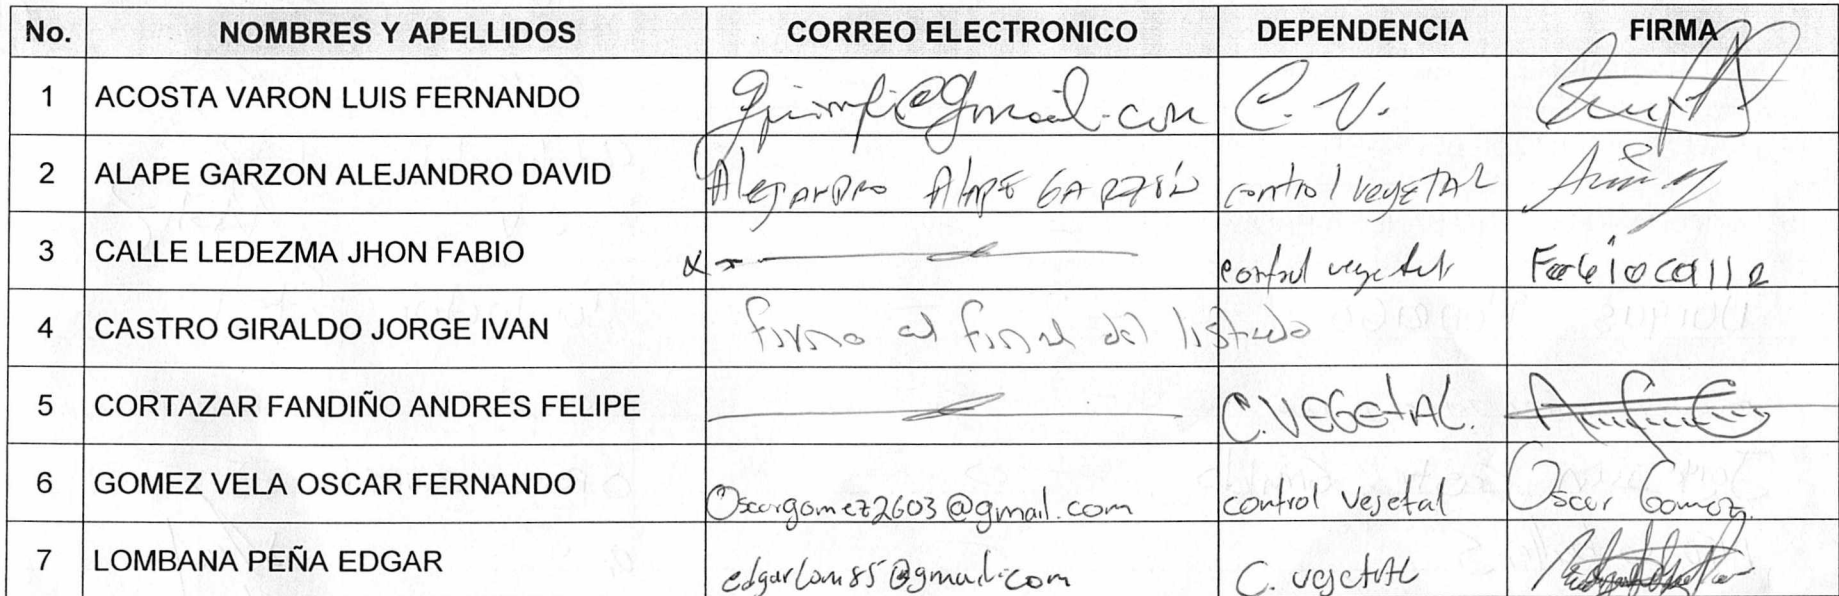 No. NOMBRES Y APELLIDOS CORREO ELECTRONICO DEPENDENCIA FIRMA
1 ACOSTA VARON LUIS FERNANDO @gmail.com C.V.
2 ALAPE GARZON ALEJANDRO DAVID Alejandro Alape GARZÓN control vegetal
3 CALLE LEDEZMA JHON FABIO control vegetal Fabio calle
4 CASTRO GIRALDO JORGE IVAN firmo al final del listado
5 CORTAZAR FANDIÑO ANDRES FELIPE C. VEGETAL.
6 GOMEZ VELA OSCAR FERNANDO Oscargomez2603@gmail.com control vejetal Oscar Gomez.
7 LOMBANA PEÑA EDGAR edgarlom85@gmail.com C. vegetal